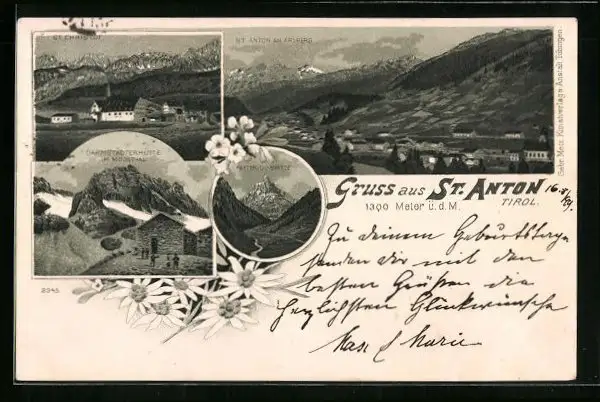 ST. CHRISTOF
ST. ANTON AM ARLBERG
DARMSTÄDTERHÜTTE
IM MOOSTHAL
Gruss aus ST. ANTON
1300 Meter ü. d. M.
TIROL.
Zu deinem Geburtstage
senden dir mit den
besten Grüßen die
herzlichsten Glückwünsche
Max & Marie
Gebr. Metz Kunstverlags-Anstalt Tübingen.